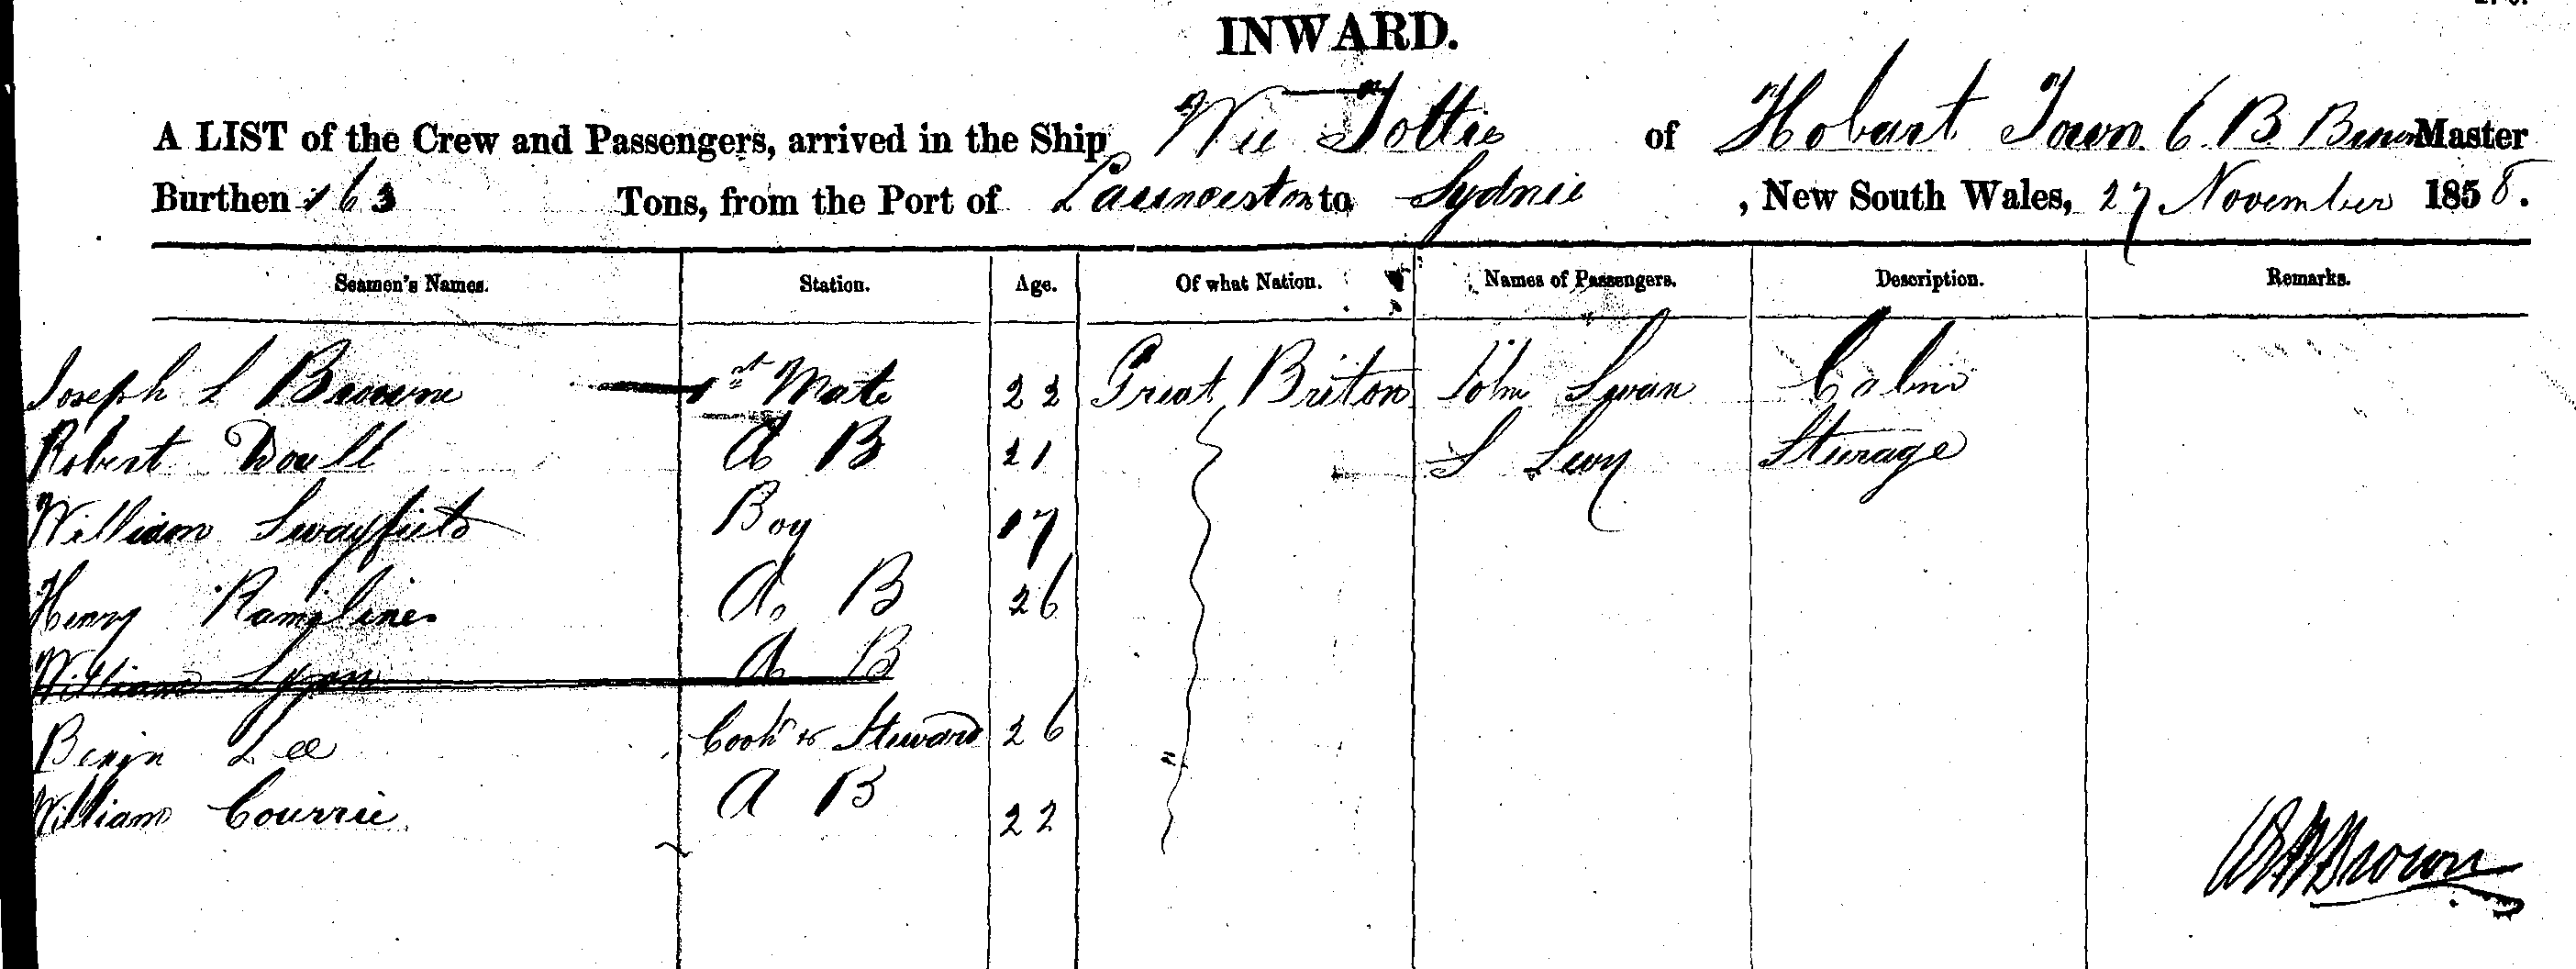 INWARD.
A LIST of the Crew and Passengers, arrived in the Ship Wee Tottie of Hobart Town B Master
Burthen 163 Tons, from the Port of Launceston to Sydnie , New South Wales, 27 November 1858.
Seamen's Names. Station. Age. Of what Nation. Names of Passengers. Description. Remarks.
Joseph L Browne 1st Mate 22 Great Briton John Swan Cabin
Robert Doull A B 21 S Levy Sturage
William Boy 17
Henry A B 26
William Lyon A B
Benjn Lee Cook & Steward 26
William Courrie A B 22
Brown